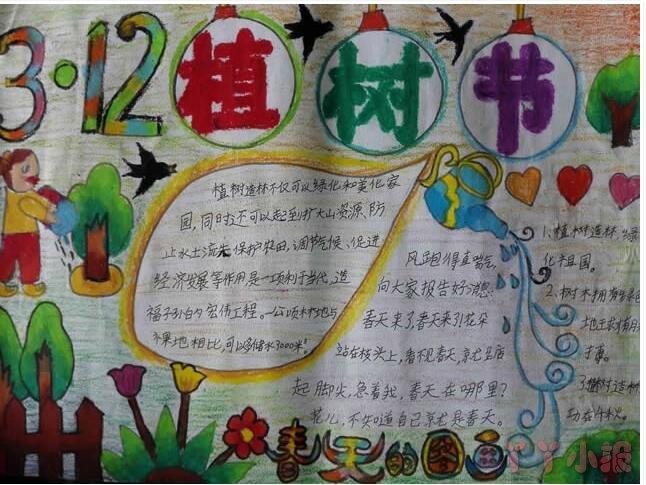 3·12植树节
植树造林不仅可以绿化和美化家
园,同时还可以起到扩大山资源、防
止水土流失保护农田、调节气候、促进
经济发展等作用,是一项利于当代、造
福子孙的宏伟工程。一公顷林地与
地相比,可以多储水3000米³。
风跑得直喘气,
向大家报告好消息:
春天来了,春天来了!花朵
站在枝头上,看不见春天,就踮
起脚尖,急着找,春天在哪里?
花儿,不知道自己就是春天。
1、植树造林 绿
化祖国。
2、树木拥有
地球
3、植树造林
功在千秋。
春天的图画
丫丫小报